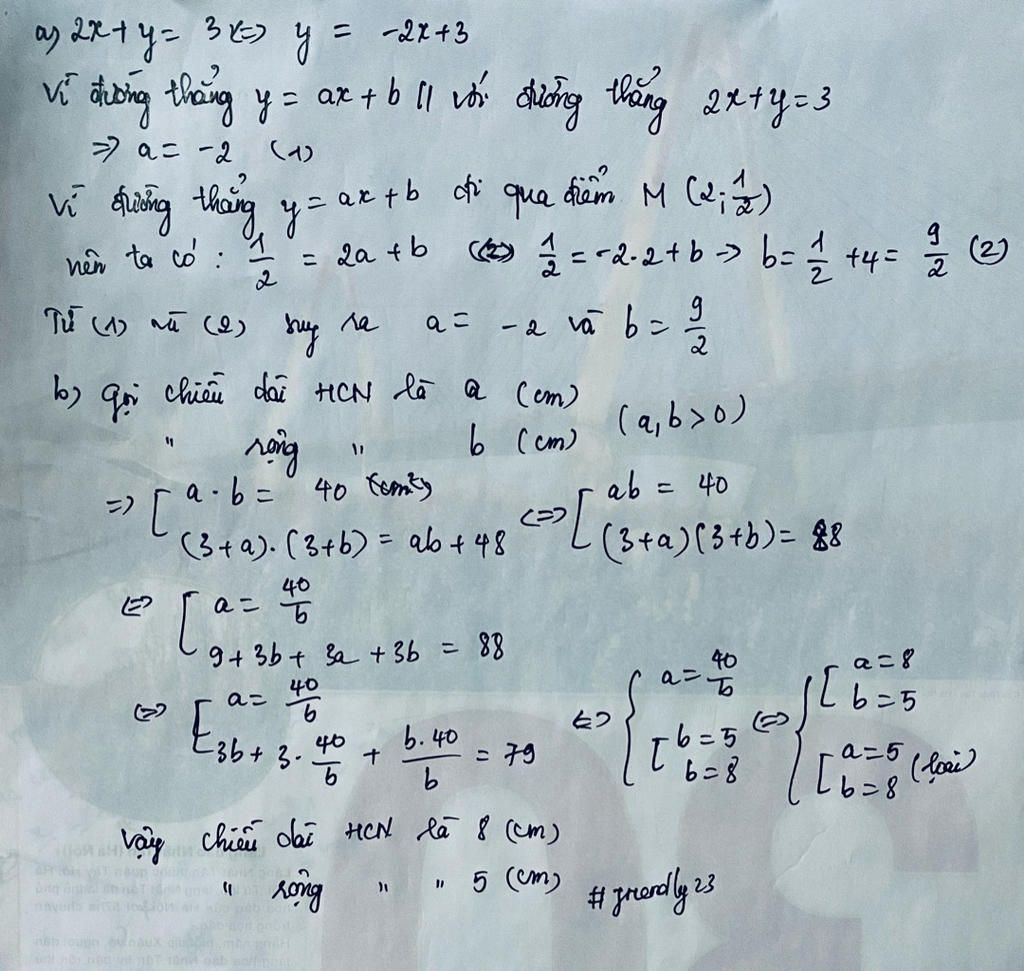 a) 2x + y = 3 <=> y = -2x + 3
Vì đường thẳng y = ax + b // với đường thẳng 2x + y = 3
=> a = -2 (1)
Vì đường thẳng y = ax + b đi qua điểm M (2; 1/2)
nên ta có : 1/2 = 2a + b <=> 1/2 = -2.2 + b -> b = 1/2 + 4 = 9/2 (2)
Từ (1) và (2) suy ra a = -2 và b = 9/2
b) gọi chiều dài HCN là a (cm) (a, b > 0)
" rộng " b (cm)
=> [ a . b = 40 (cm²) <=> [ ab = 40
(3 + a) . (3 + b) = ab + 48 (3 + a)(3 + b) = 88
<=> [ a = 40/b
9 + 3b + 3a + 3b = 88
<=> [ a = 40/b <=> { a = 40/b <=> { [ a = 8 b = 5
3b + 3. 40/b + b.40/b = 79 [ b = 5 b = 8 [ a = 5 b = 8 (loại)
Vậy chiều dài HCN là 8 (cm)
" rộng " " 5 (cm) # friendly 23